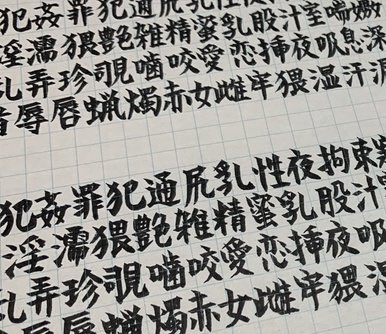 犯姦罪犯通尻乳性夜
淫濡猥艶雑精蜜乳股汁室喘嫐
乳弄珍覗噛咬愛恋挿夜吸息深
辱唇蝋燭赤女雌牢猥湿汗
犯姦罪犯通尻乳性夜拘束
淫濡猥艶雑精蜜乳股汁
乳弄珍覗噛咬愛恋挿夜吸
辱唇蝋燭赤女雌牢猥湿